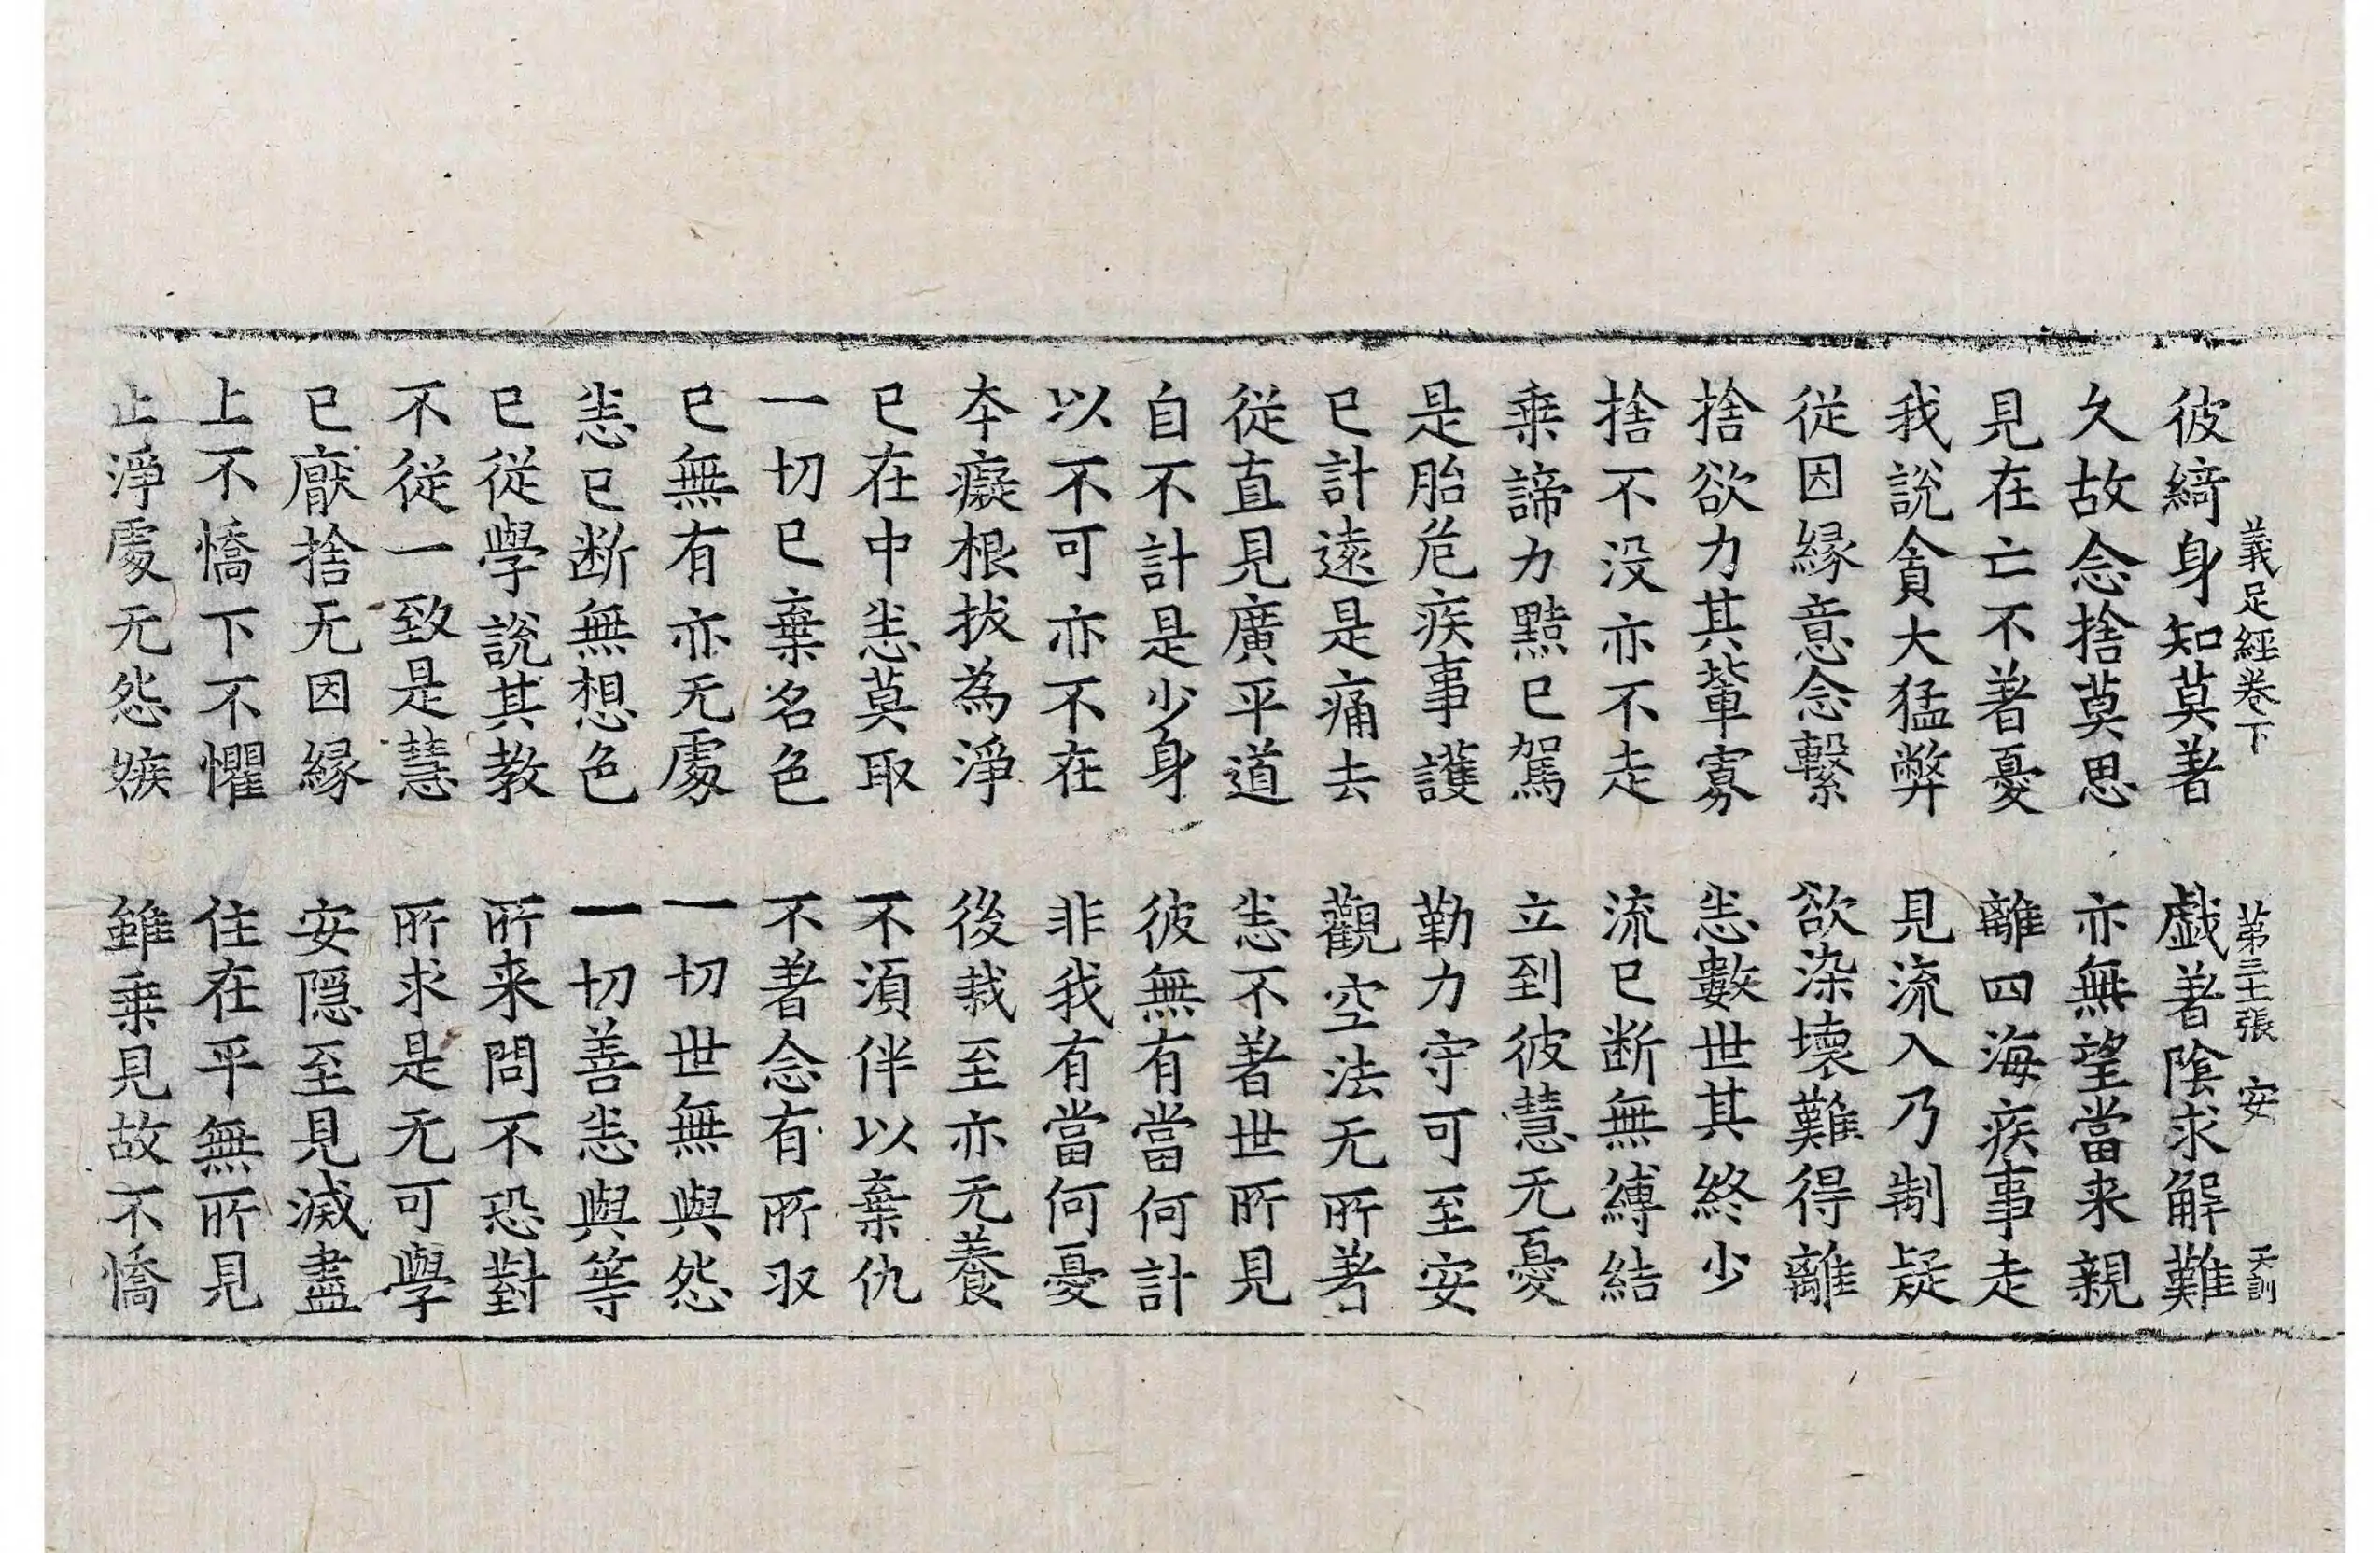 義足經卷下 第三十張 安 天訓
彼綺身知莫著 戲著陰求解難
久故念捨莫思 亦無望當来親
見在亡不著憂 離四海疾事走
我說貪大猛弊 見流入乃制疑
從因緣意念繫 欲染壞難得離
捨欲力其輩寡 恙數世其終少
捨不没亦不走 流已断無縛結
乗諦力黠已駕 立到彼慧无憂
是胎危疾事護 勤力守可至安
已計遠是痛去 觀空法无所著
從直見廣平道 恙不著世所見
自不計是少身 彼無有當何計
以不可亦不在 非我有當何憂
夲癡根拔為淨 後栽至亦无養
已在中恙莫取 不須伴以棄仇
一切已棄名色 不著念有所収
已無有亦无處 一切世無與怨
恙已断無想色 一切善恙與等
已從學說其教 所来問不恐對
不從一致是慧 所求是无可學
已厭捨无因緣 安隱至見滅盡
上不憍下不懼 住在平無所見
止淨處无怨嫉 雖乗見故不憍